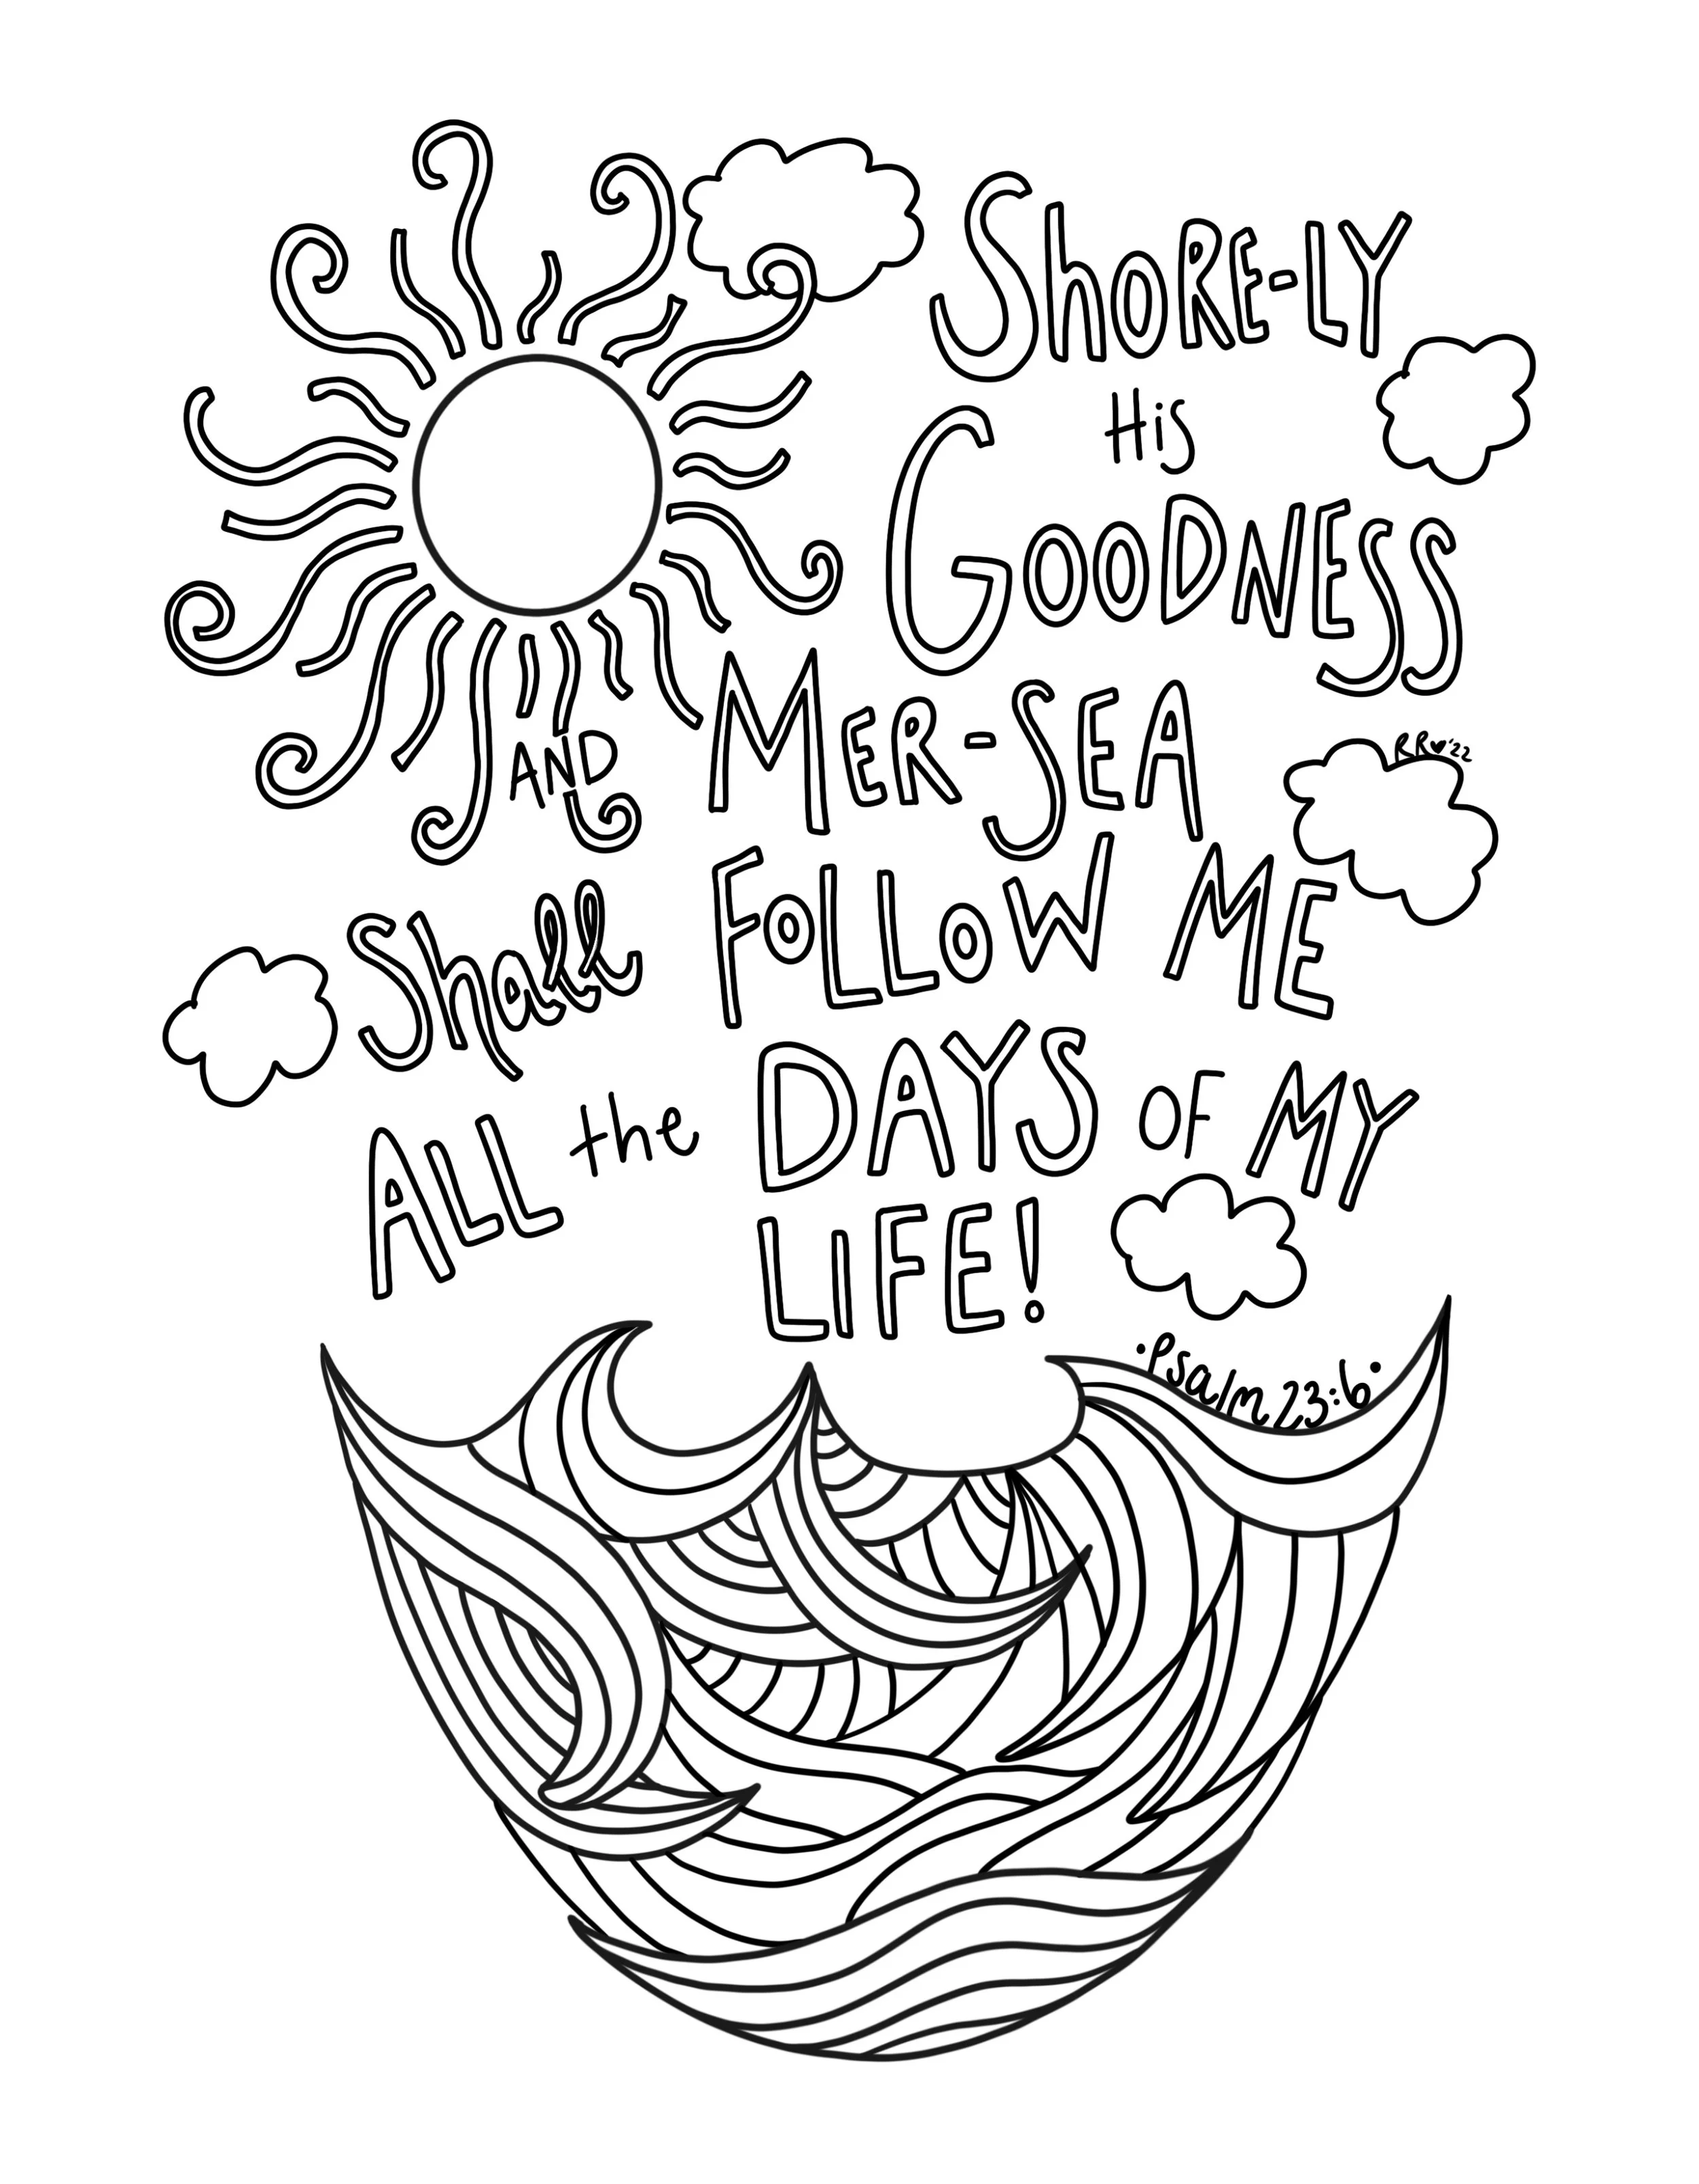 ShORE-LY
His
GOODNESS
AND MER-SEA
Shall FOLLOW ME
ALL the DAYS OF MY
LIFE!
Psalm 23:6
RR♥'22